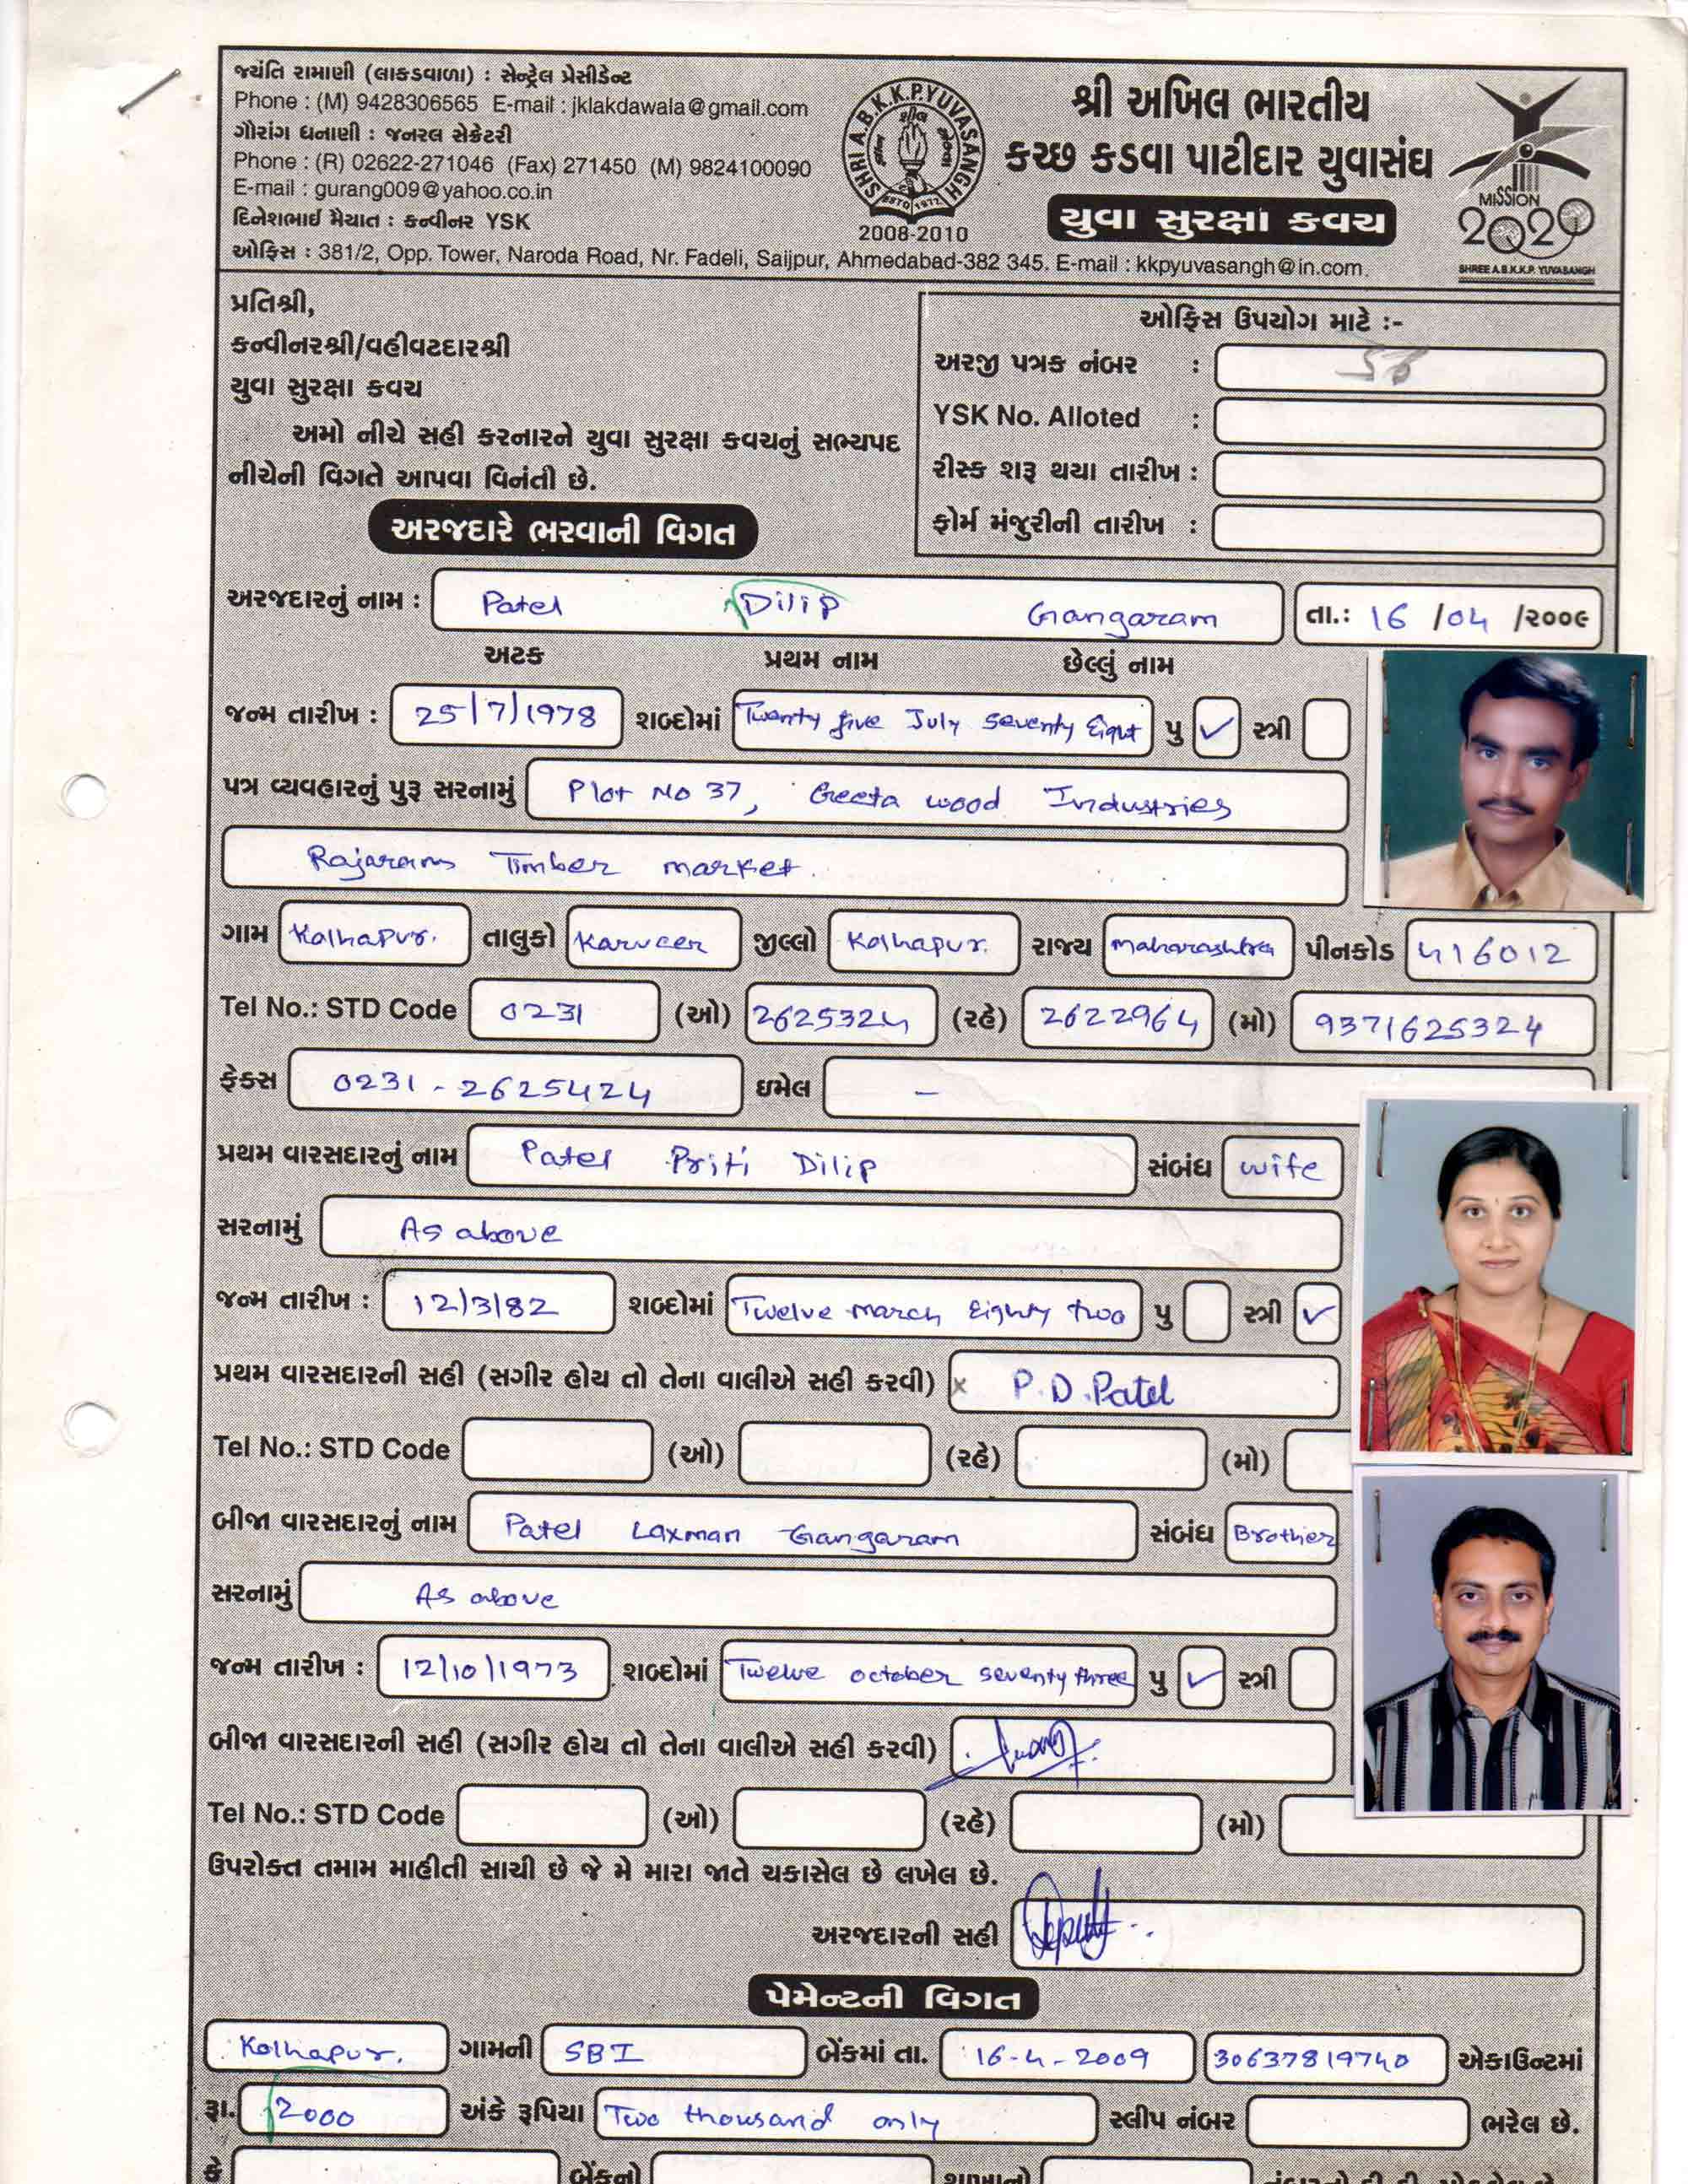 જયંતિ રામાણી (લાકડાવાળા) : સેન્ટ્રેલ પ્રેસીડેન્ટ
Phone : (M) 9428306565 E-mail : jklakdawala@gmail.com
ગૌરાંગ ધનાણી : જનરલ સેક્રેટરી
Phone : (R) 02622-271046 (Fax) 271450 (M) 9824100090
E-mail : gurang009@yahoo.co.in
દિનેશભાઈ મૈયાત : કન્વીનર YSK
SHRI A.B.K.K.P. YUVASANGH
ESTD 1977
2008-2010
શ્રી અખિલ ભારતીય
કચ્છ કડવા પાટીદાર યુવાસંઘ
યુવા સુરક્ષા કવચ
MISSION
2020
SHREE A.B.K.K.P. YUVASANGH
ઓફિસ : 381/2, Opp. Tower, Naroda Road, Nr. Fadeli, Saijpur, Ahmedabad-382 345. E-mail : kkpyuvasangh@in.com.
પ્રતિશ્રી,
કન્વીનરશ્રી/વહીવટદારશ્રી
યુવા સુરક્ષા કવચ
અમો નીચે સહી કરનારને યુવા સુરક્ષા કવચનું સભ્યપદ
નીચેની વિગતે આપવા વિનંતી છે.
ઓફિસ ઉપયોગ માટે :-
અરજી પત્રક નંબર :
YSK No. Alloted :
રીસ્ક શરૂ થયા તારીખ :
ફોર્મ મંજુરીની તારીખ :
અરજદારે ભરવાની વિગત
અરજદારનું નામ : Patel Dilip Gangaram તા.: 16 /04 /૨૦૦૯
અટક પ્રથમ નામ છેલ્લું નામ
જન્મ તારીખ : 25/7/1978 શબ્દોમાં Twenty five July Seventy Eight પુ ✓ સ્ત્રી
પત્ર વ્યવહારનું પુરૂ સરનામું Plot No 37, Geeta wood Industries
Rajaram Timber market.
ગામ Kolhapur. તાલુકો Karveer જીલ્લો Kolhapur. રાજ્ય maharashtra પીનકોડ 416012
Tel No.: STD Code 0231 (ઓ) 2625324 (રહે) 2622964 (મો) 9371625324
ફેક્સ 0231 - 2625424 ઇમેલ –
પ્રથમ વારસદારનું નામ Patel Priti Dilip સંબંધ wife
સરનામું As above
જન્મ તારીખ : 12/3/82 શબ્દોમાં Twelve march Eighty two પુ સ્ત્રી ✓
પ્રથમ વારસદારની સહી (સગીર હોય તો તેના વાલીએ સહી કરવી) x P.D.Patel
Tel No.: STD Code (ઓ) (રહે) (મો)
બીજા વારસદારનું નામ Patel Laxman Gangaram સંબંધ Brother
સરનામું As above
જન્મ તારીખ : 12/10/1973 શબ્દોમાં Twelve october seventy three પુ ✓ સ્ત્રી
બીજા વારસદારની સહી (સગીર હોય તો તેના વાલીએ સહી કરવી)
Tel No.: STD Code (ઓ) (રહે) (મો)
ઉપરોક્ત તમામ માહીતી સાચી છે જે મે મારા જાતે ચકાસેલ છે લખેલ છે.
અરજદારની સહી
પેમેન્ટની વિગત
Kolhapur. ગામની SBI બેંકમાં તા. 16-4-2009 30637819740 એકાઉન્ટમાં
રૂા. 2000 અંકે રૂપિયા Two thousand only સ્લીપ નંબર ભરેલ છે.
કે બેંકનો શાખાનો